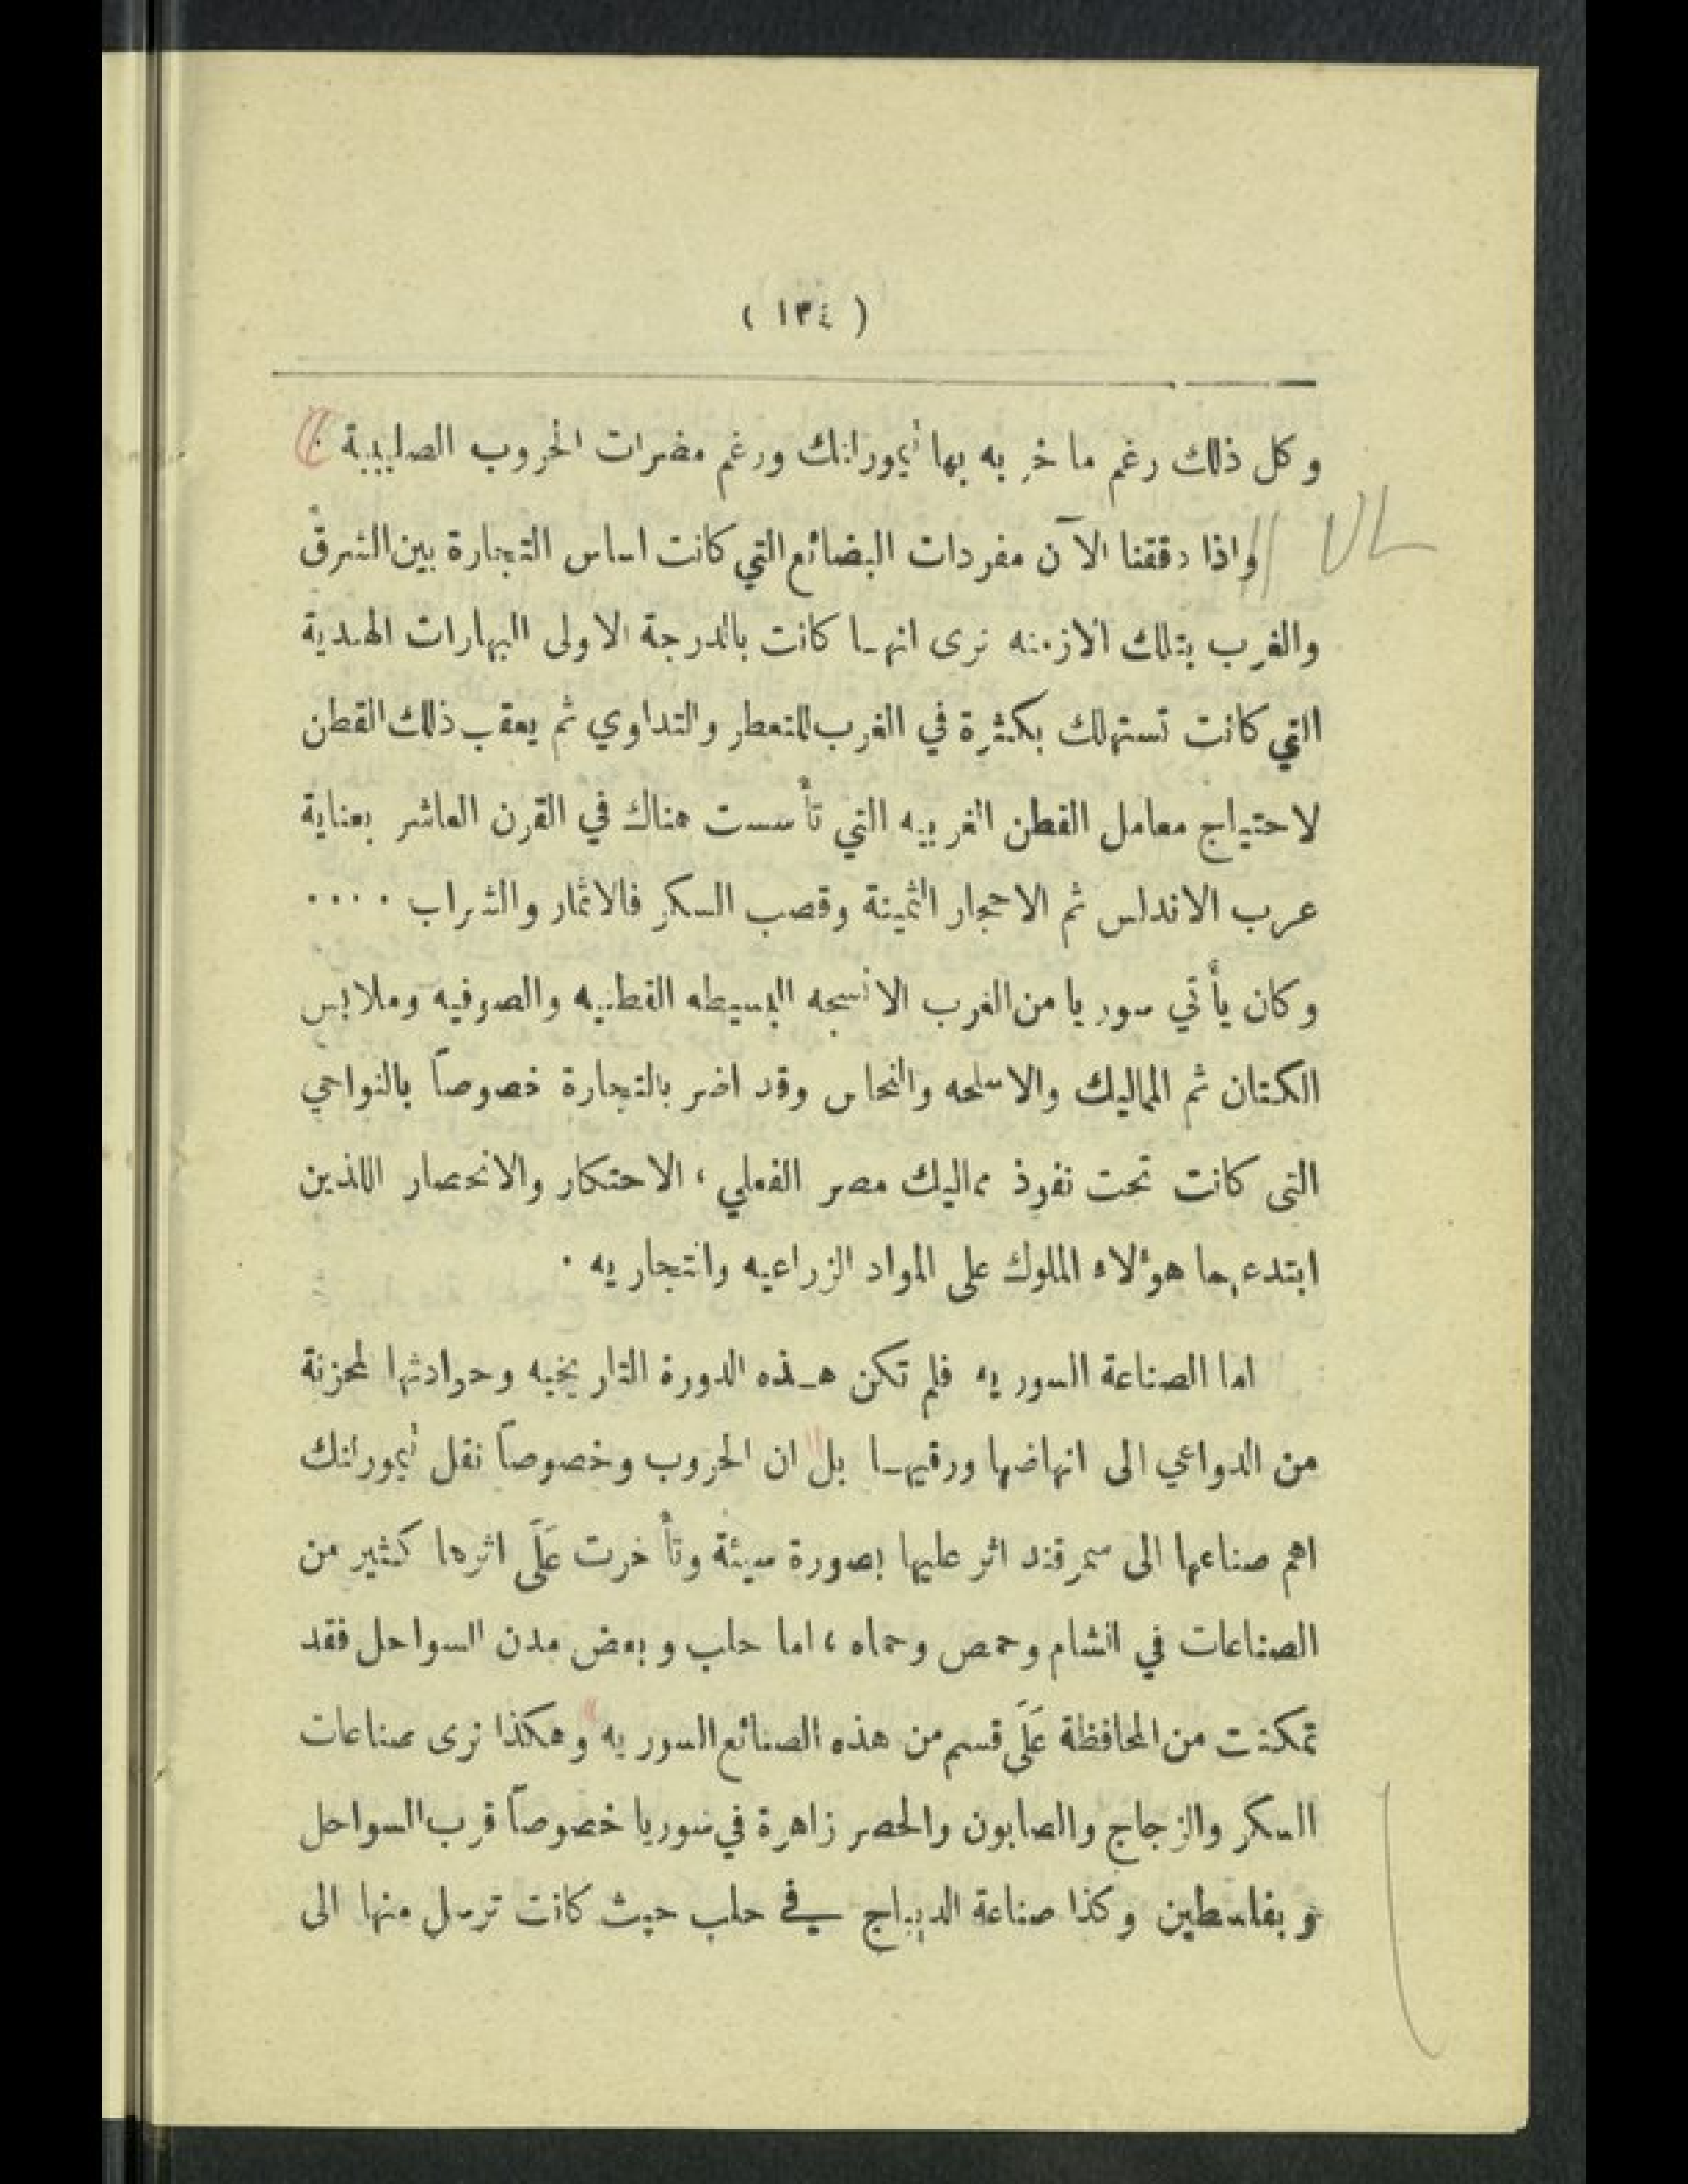 ( ١٣٤ )
وكل ذلك رغم ما خربه بها تيمورلنك ورغم مضرات الحروب الصليبية .
واذا دققنا الآن مفردات البضائع التي كانت اساس التجارة بين الشرق
والغرب بتلك الازمنه نرى انها كانت بالدرجة الاولى البهارات الهندية
التي كانت تستهلك بكثرة في الغرب للتعطر والتداوي ثم يعقب ذلك القطن
لاحتياج معامل القطن الغربيه التي تأسست هناك في القرن العاشر بعناية
عرب الاندلس ثم الاحجار الثمينة وقصب السكر فالاثمار والشراب ....
وكان يأتي سوريا من الغرب الانسجه البسيطه القطنيه والصوفيه وملابس
الكتان ثم المماليك والاسلحه والنحاس وقد اضر بالتجارة خصوصاً بالنواحي
التى كانت تحت نفوذ مماليك مصر الفعلي ، الاحتكار والانحصار اللذين
ابتدعهما هؤلاء الملوك على المواد الزراعيه والتجاريه .
اما الصناعة السوريه فلم تكن هذه الدورة التاريخيه وحوادثها لمحزنة
من الدواعي الى انهاضها ورقيها بل ان الحروب وخصوصاً نقل تيمورلنك
اهم صناعها الى سمرقند اثر عليها بصورة سيئة وتأخرت عَلَى اثرها كثير من
الصناعات في الشام وحمص وحماه ، اما حلب وبعض مدن السواحل فقد
تمكنت من المحافظة عَلَى قسم من هذه الصنائع السوريه وهكذا نرى صناعات
السكر والزجاج والصابون والحصر زاهرة في سوريا خصوصاً قرب السواحل
وبفلسطين وكذا صناعة الديباج في حلب حيث كانت ترسل منها الى